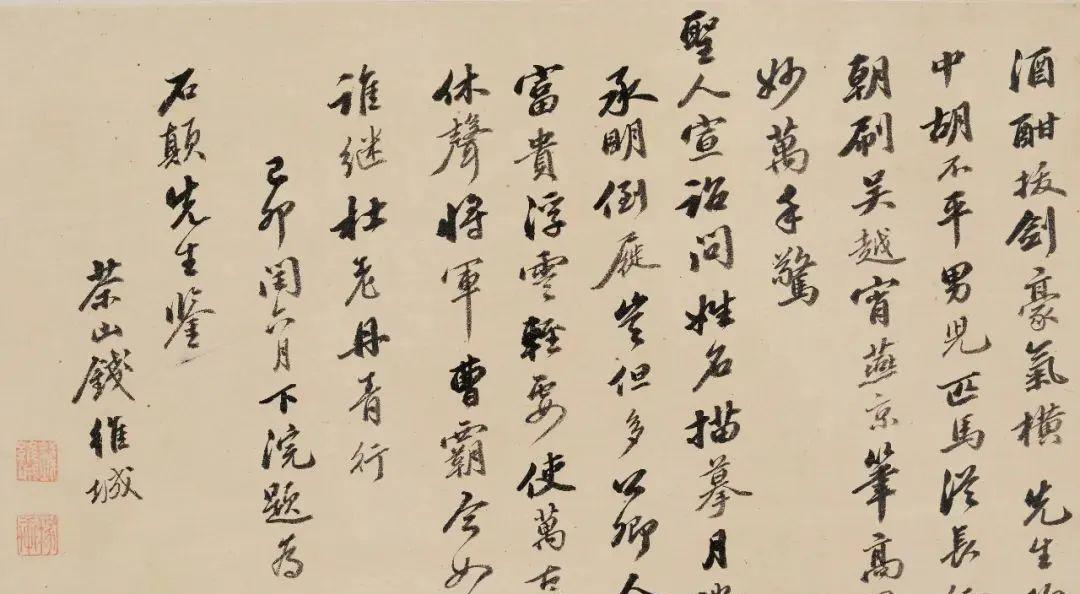 酒酣拔劍豪氣橫先生胸
中胡不平男兒匹馬從長征
朝刷吳越宵燕京筆高
妙萬手驚
聖人宣詔問姓名描摹月
承明倒屣豈但多公卿人
富貴浮雲輕要使萬古
休聲將軍曹霸今如
誰继杜老丹青行
己卯閏六月下浣題為
石顛先生鑒
茶山錢維城